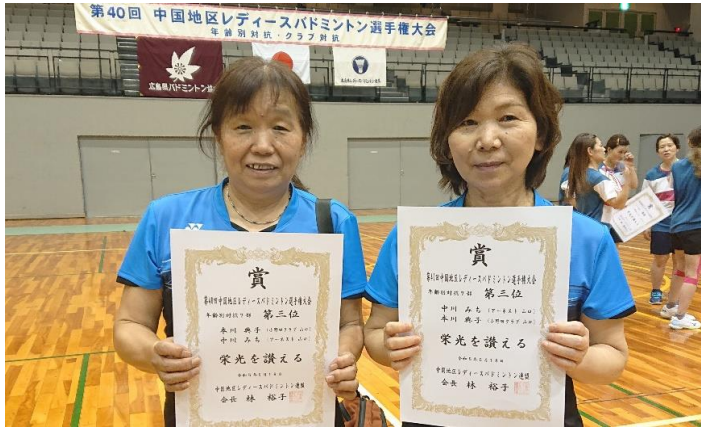 第40回 中国地区レディースバドミントン選手権大会
年齢別対抗・クラブ対抗
広島県バドミントン協会
賞
第40回中国地区レディースバドミントン選手権大会
年齢別対抗9部 第三位
本川 典子
中川 みち
栄光を讃える
中国地区レディースバドミントン連盟
会長 林 裕子
賞
第40回中国地区レディースバドミントン選手権大会
年齢別対抗9部 第三位
中川 みち
本川 典子
栄光を讃える
中国地区レディースバドミントン連盟
会長 林 裕子